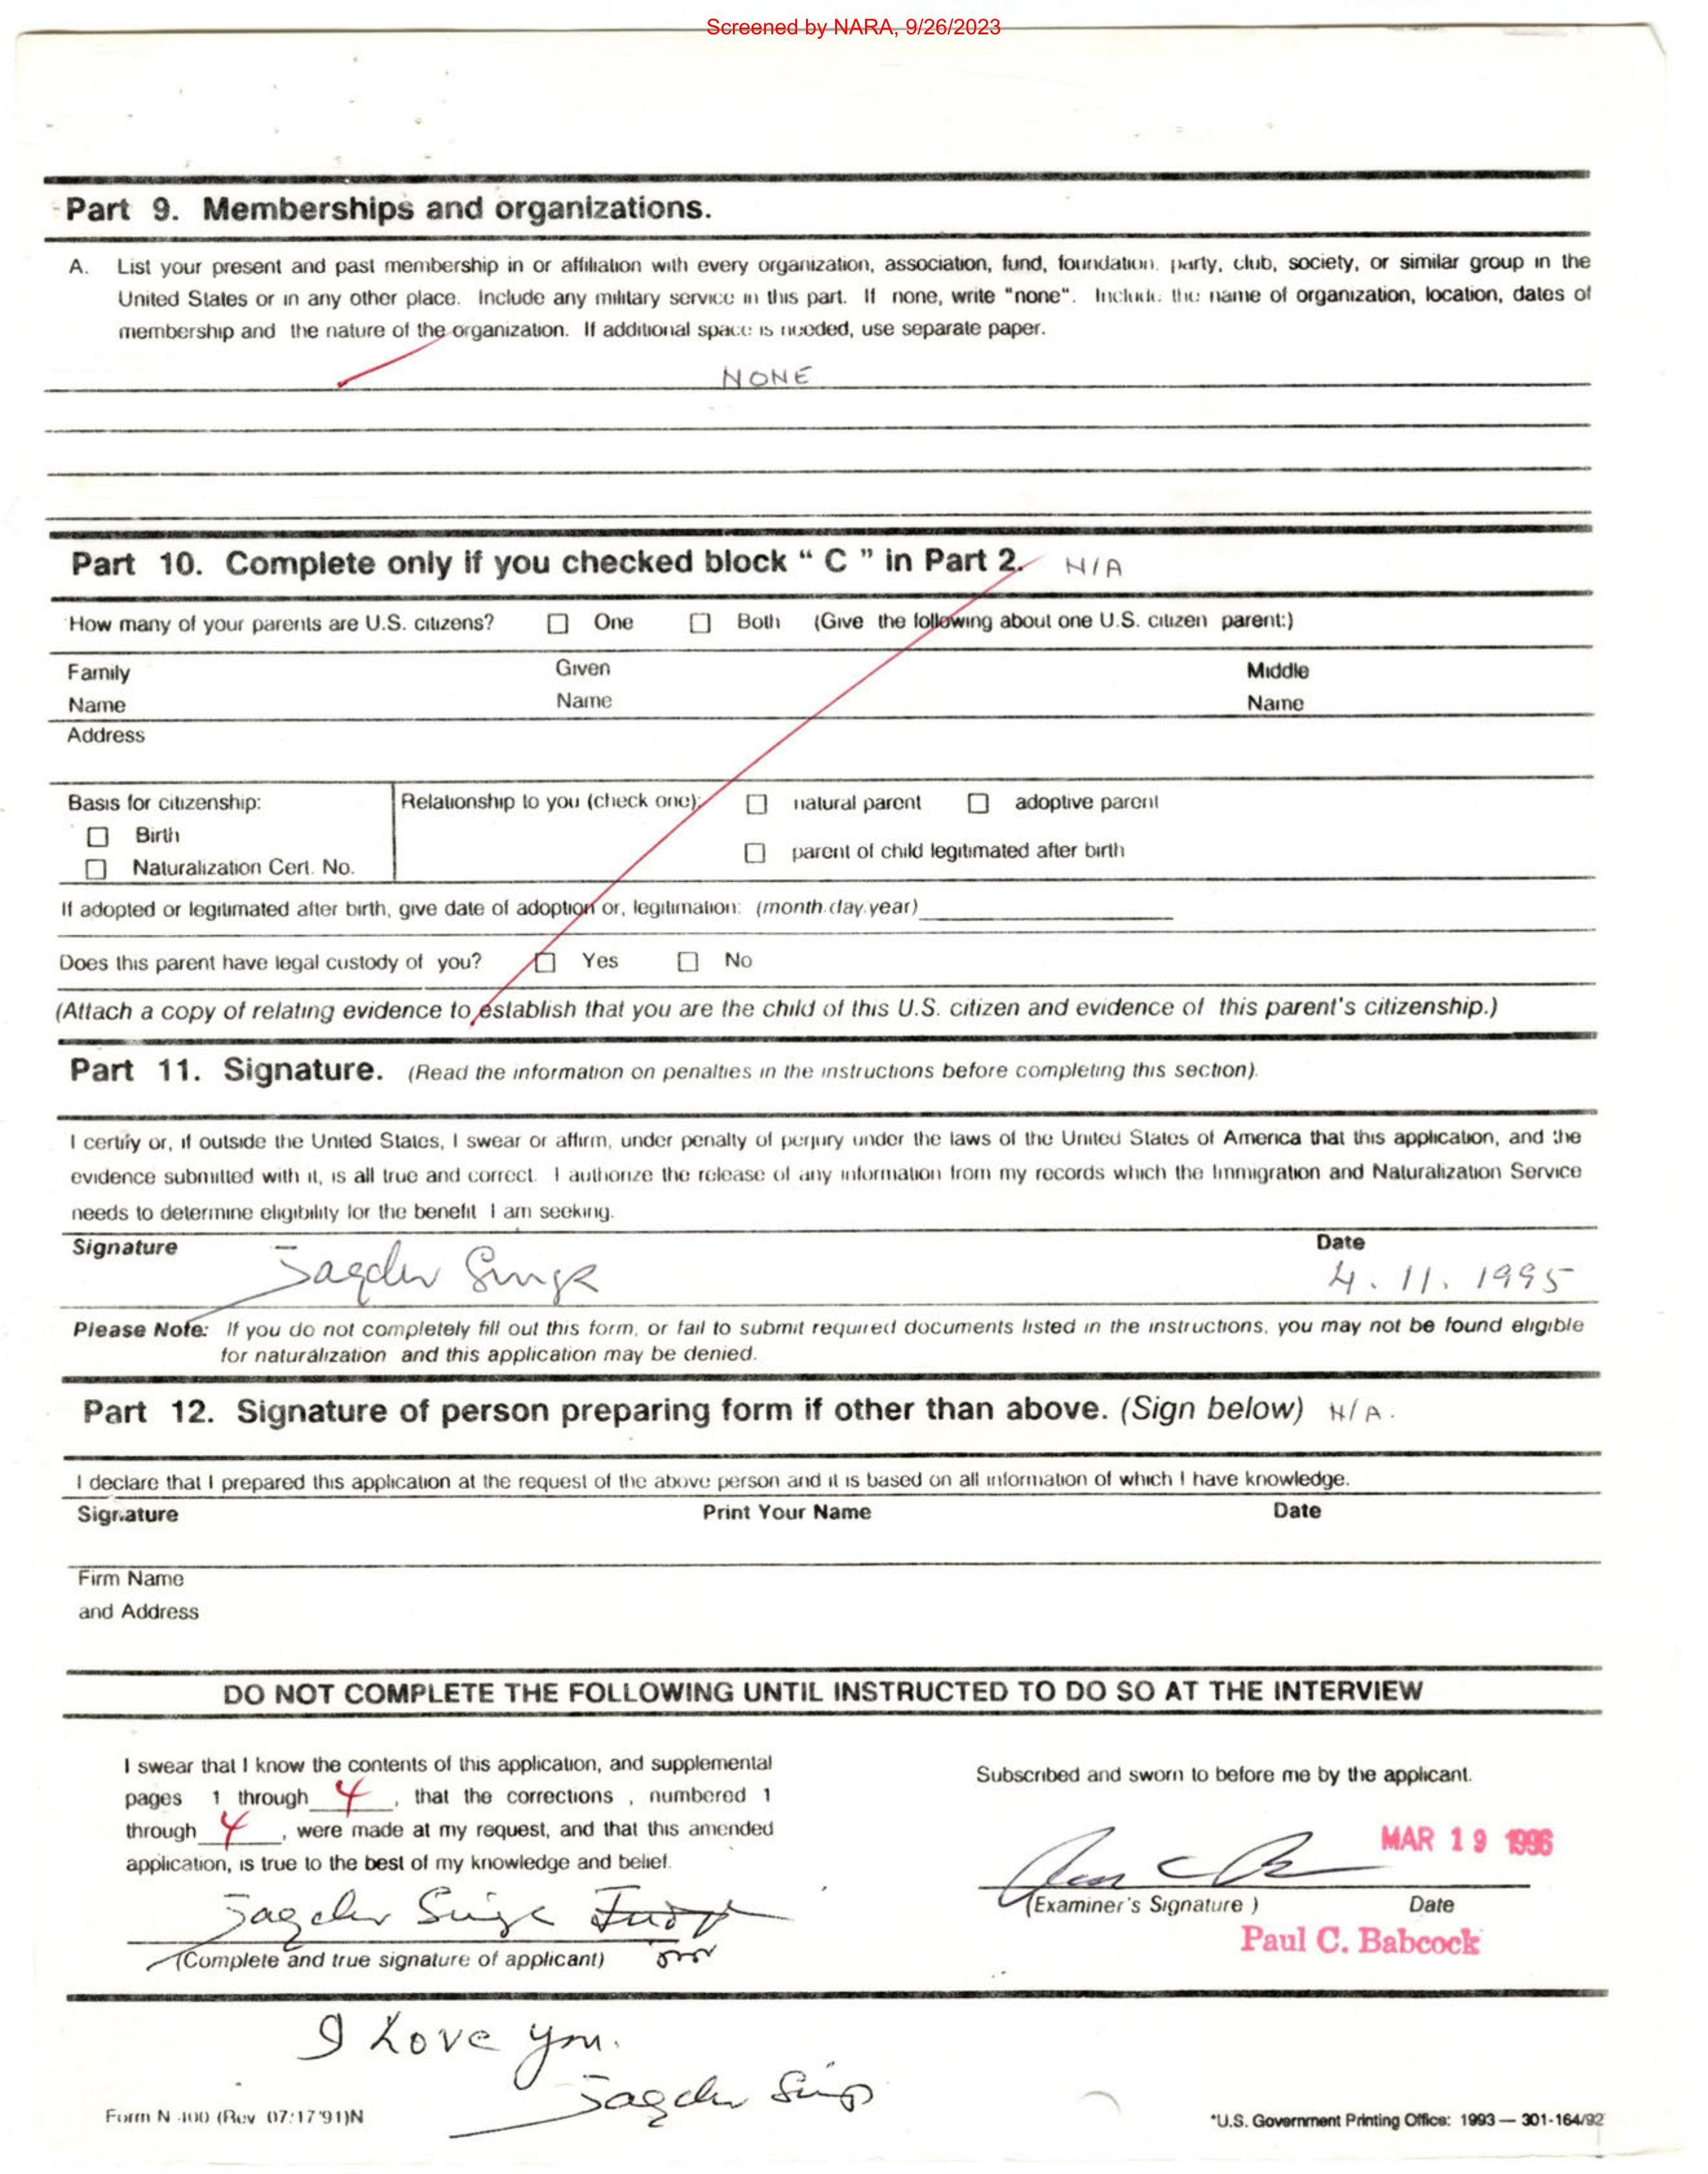 Screened by NARA, 9/26/2023
Part 9. Memberships and organizations.
A. List your present and past membership in or affiliation with every organization, association, fund, foundation, party, club, society, or similar group in the
United States or in any other place. Include any military service in this part. If none, write "none". Include the name of organization, location, dates of
membership and the nature of the organization. If additional space is needed, use separate paper.
NONE
Part 10. Complete only if you checked block " C " in Part 2. N/A
How many of your parents are U.S. citizens? ☐ One ☐ Both (Give the following about one U.S. citizen parent:)
Family Given Middle
Name Name Name
Address
Basis for citizenship: Relationship to you (check one): ☐ natural parent ☐ adoptive parent
☐ Birth
☐ parent of child legitimated after birth
☐ Naturalization Cert. No.
If adopted or legitimated after birth, give date of adoption or, legitimation: (month.day.year)
Does this parent have legal custody of you? ☐ Yes ☐ No
(Attach a copy of relating evidence to establish that you are the child of this U.S. citizen and evidence of this parent's citizenship.)
Part 11. Signature. (Read the information on penalties in the instructions before completing this section).
I certify or, if outside the United States, I swear or affirm, under penalty of perjury under the laws of the United States of America that this application, and the
evidence submitted with it, is all true and correct. I authorize the release of any information from my records which the Immigration and Naturalization Service
needs to determine eligibility for the benefit I am seeking.
Signature Date
Jagdev Singh 4. 11. 1995
Please Note: If you do not completely fill out this form, or fail to submit required documents listed in the instructions, you may not be found eligible
for naturalization and this application may be denied.
Part 12. Signature of person preparing form if other than above. (Sign below) N/A.
I declare that I prepared this application at the request of the above person and it is based on all information of which I have knowledge.
Signature Print Your Name Date
Firm Name
and Address
DO NOT COMPLETE THE FOLLOWING UNTIL INSTRUCTED TO DO SO AT THE INTERVIEW
I swear that I know the contents of this application, and supplemental
pages 1 through 4, that the corrections , numbered 1
through 4, were made at my request, and that this amended
application, is true to the best of my knowledge and belief.
Subscribed and sworn to before me by the applicant.
MAR 19 1996
Jagdev Singh
(Complete and true signature of applicant)
(Examiner's Signature ) Date
Paul C. Babcock
I Love you.
Jagdev Singh
Form N-400 (Rev 07/17/91)N
*U.S. Government Printing Office: 1993 — 301-164/92